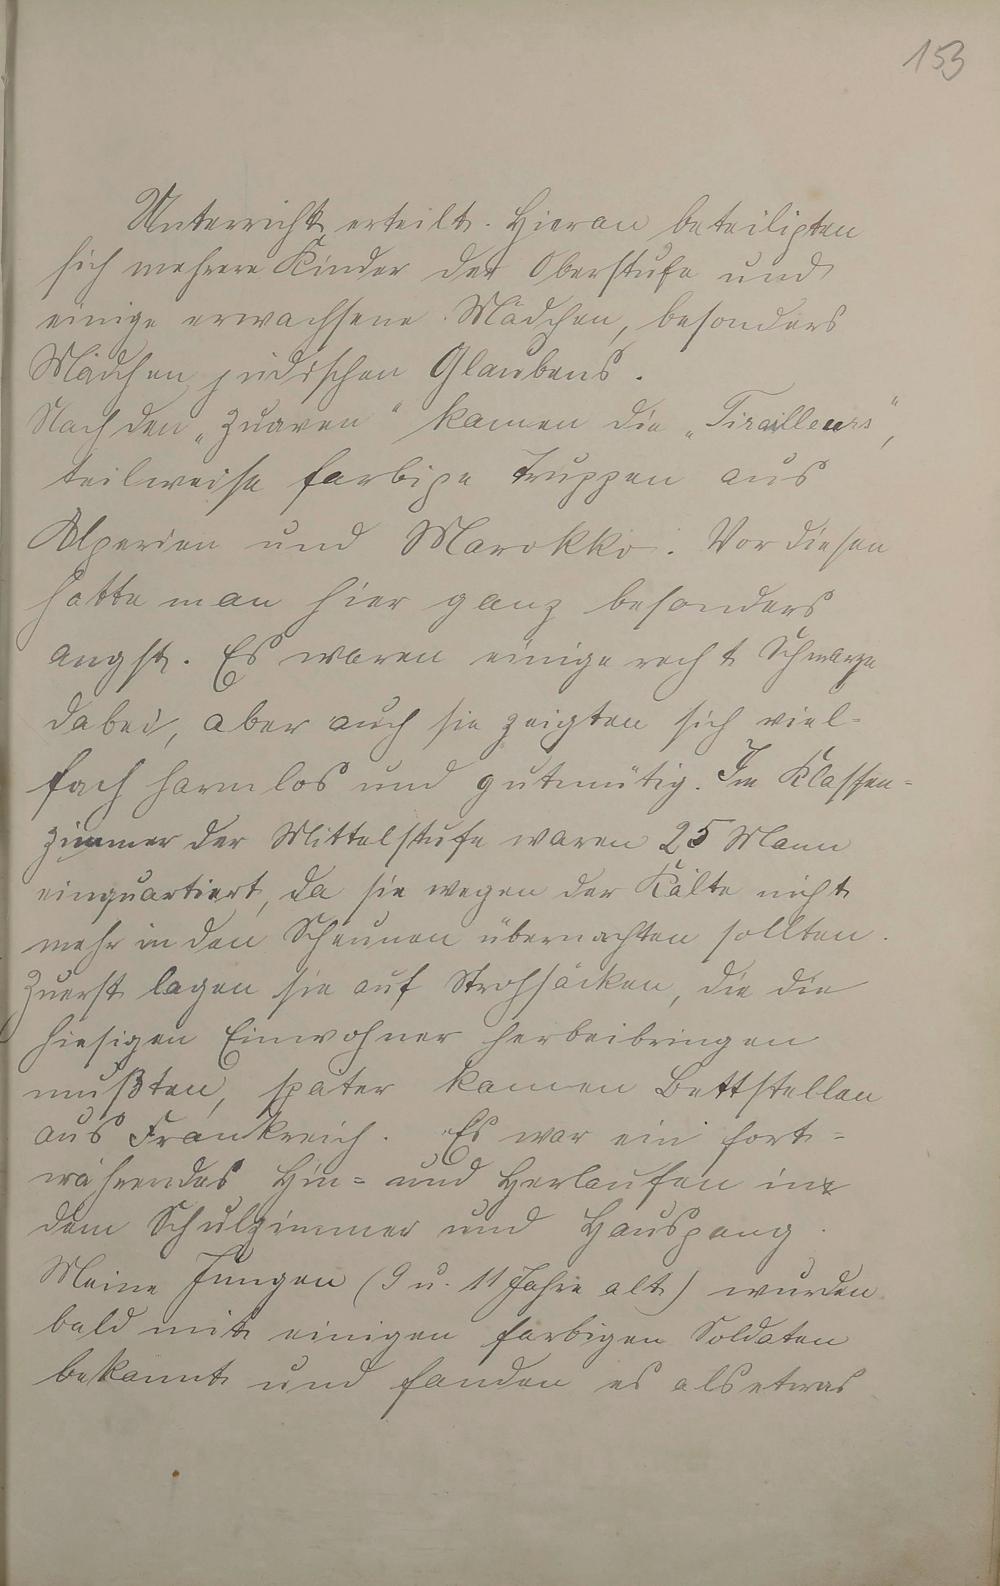 153
Unterricht erteilt. Hieran beteiligten
sich mehrere Kinder der Oberstufe und
einige erwachsene Mädchen, besonders
Mädchen jüdischen Glaubens.
Nach den „Zuaven“ kamen die „Tirailleurs“,
teilweise farbige Truppen aus
Algerien und Marokko. Vor diesen
hatte man hier ganz besonders
angst. Es waren einige recht Schwarze
dabei, aber auch sie zeigten sich viel-
fach harmlos und gutmütig. Im Klassen-
zimmer der Mittelstufe waren 25 Mann
einquartiert, da sie wegen der Kälte nicht
mehr in den Scheunen übernachten sollten.
Zuerst lagen sie auf Strohsäcken, die die
hiesigen Einwohner herbeibringen
mußten, später kamen Bettstellen
aus Frankreich. Es war ein fort-
währendes Hin- und Herlaufen in
dem Schulzimmer und Hausgang.
Meine Jungen (9 u. 11 Jahre alt) wurden
bald mit einigen farbigen Soldaten
bekannt und fanden es als etwas